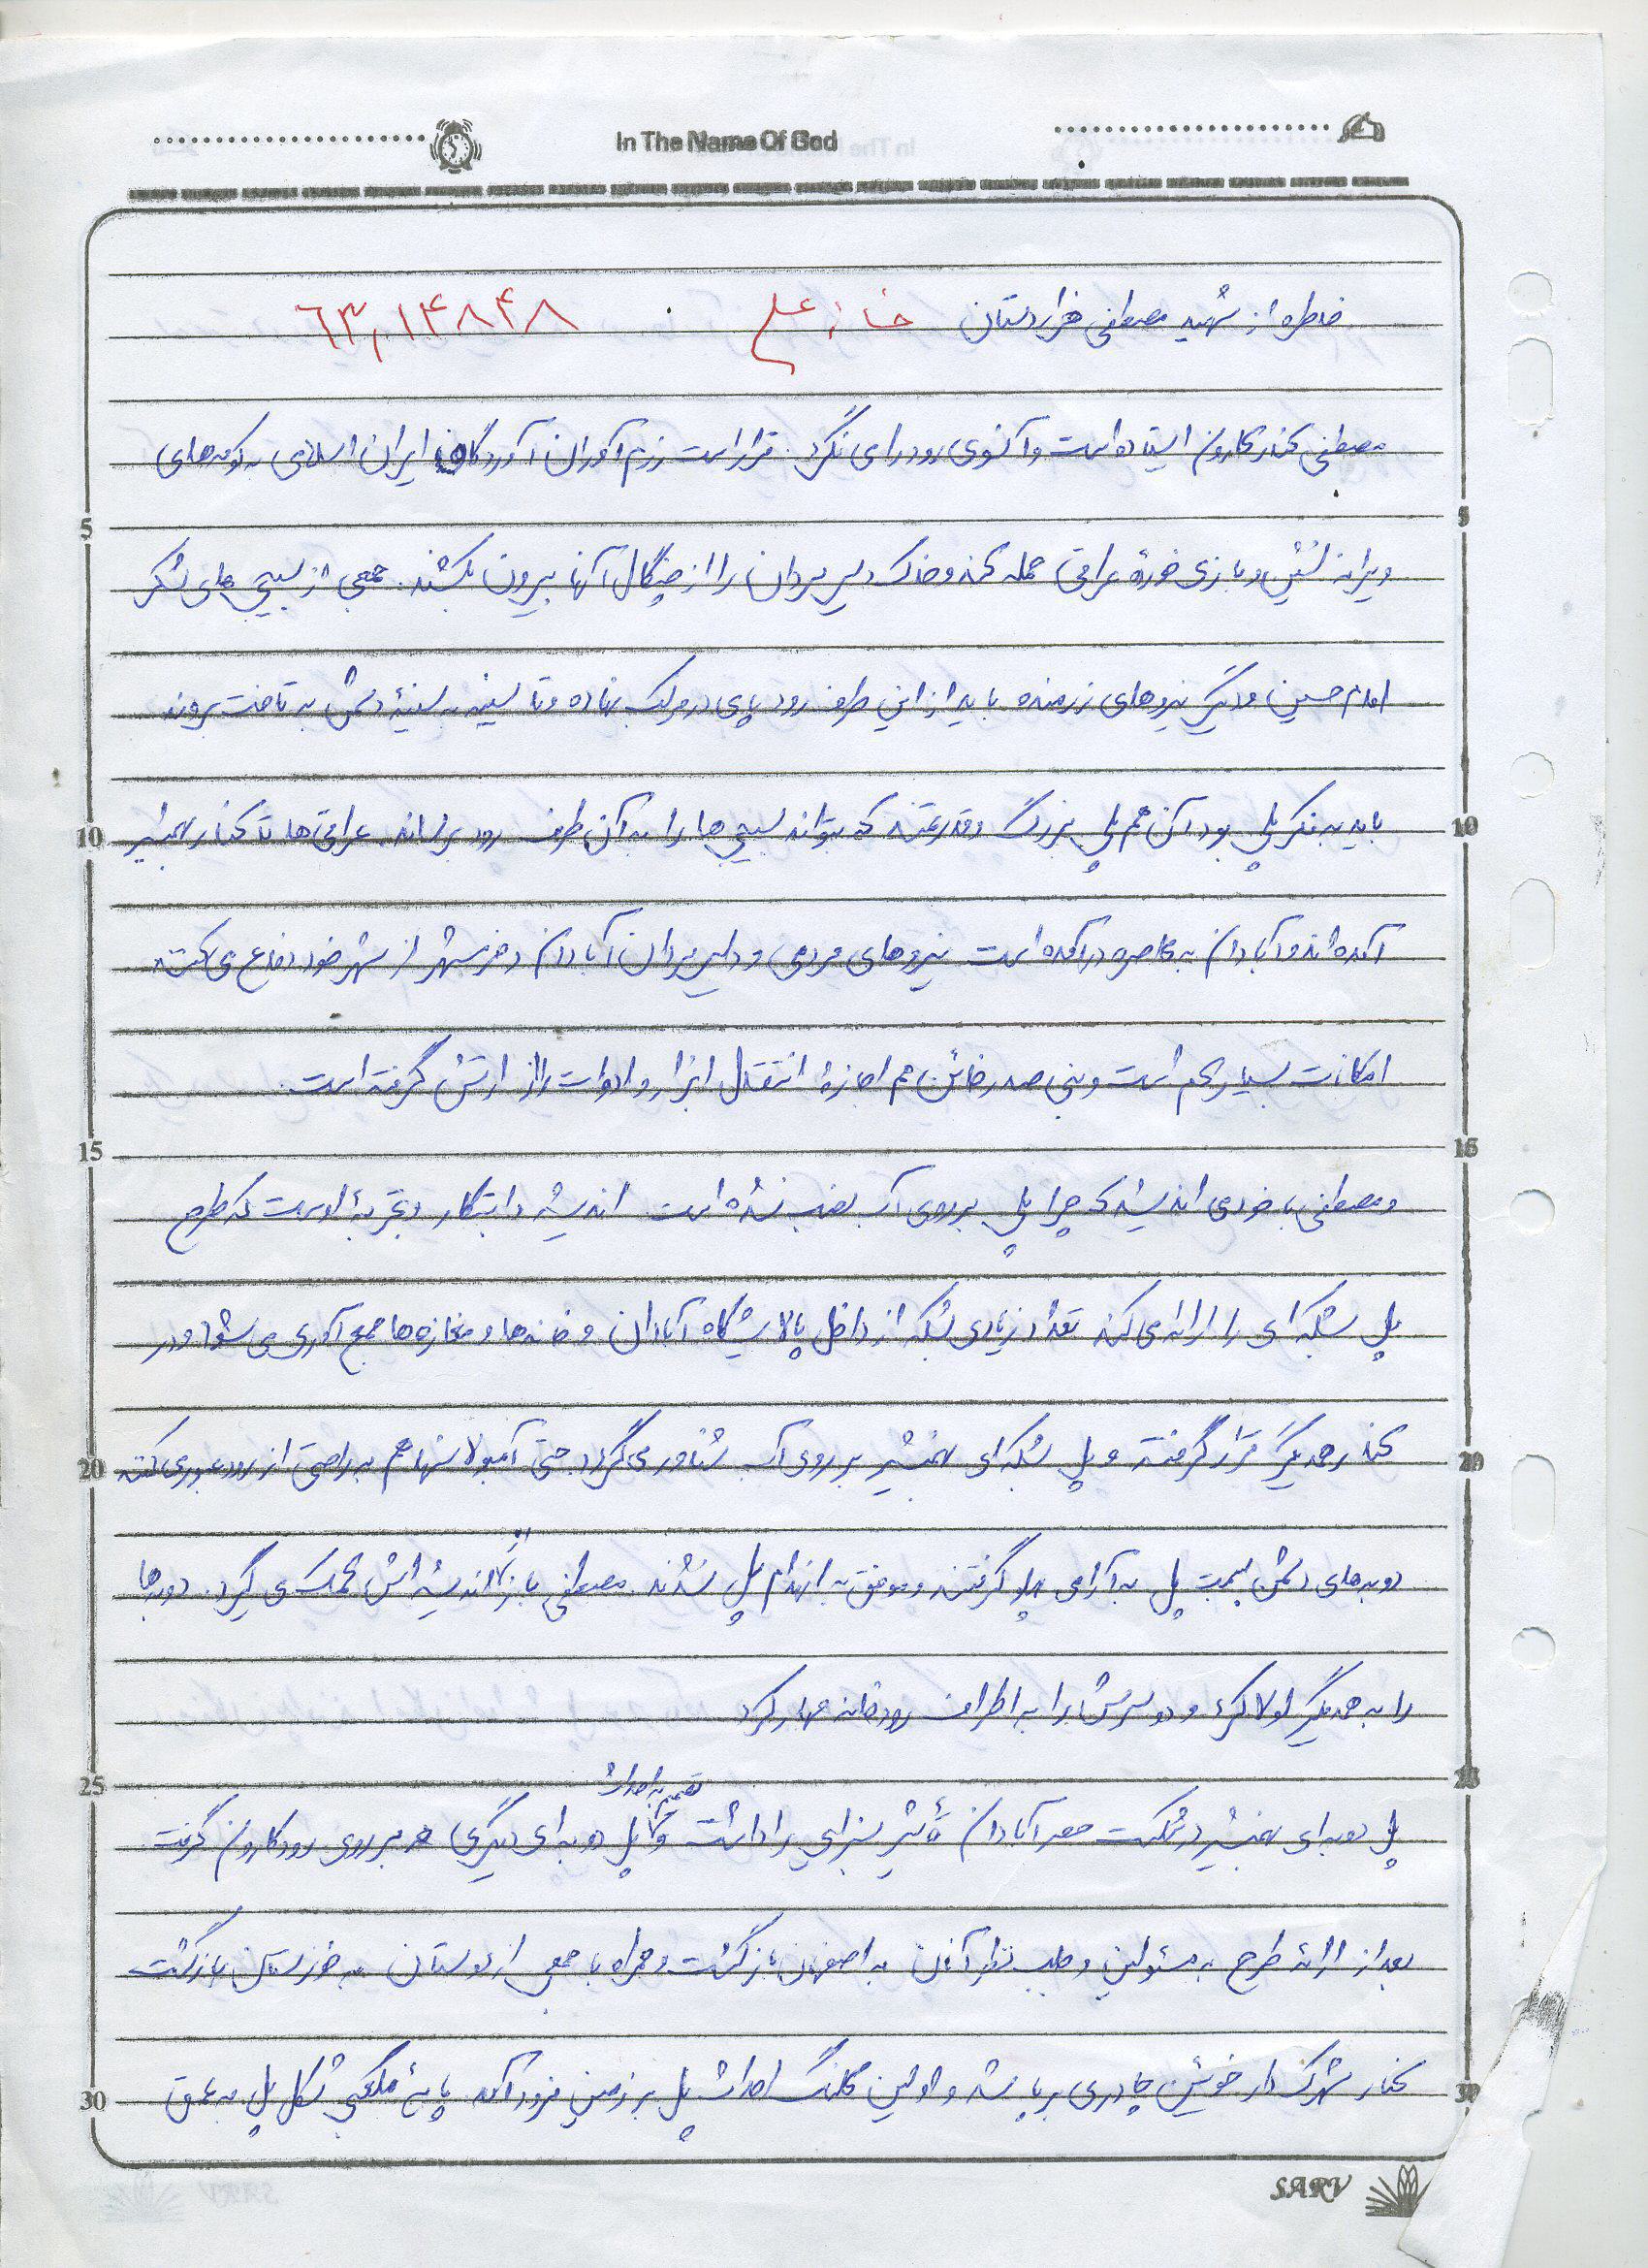 In The Name Of God
خاطره از شهید مصطفی هزاردستان خانه علی ۶۳،۱۴۸۴۸
مصطفی کنار کارون ایستاده است و آنسوی رود را می نگرد. قرار است رزم آوران ایران اسلامی به کومه های
ویرانه نشین و بازی خوردۀ عراقی حمله کنند و خاک دلیر مردان را از چنگال آنها بیرون بکشند. جمعی از بسیجی های لشکر
امام حسین و دیگر نیروهای رزمنده باید از این طرف رود پای در مرکب نهاده و تا سینه به سینۀ دشمن به تاخت بروند
باید به فکر پل بود آن هم پلی بزرگ و قدرتمند که بتواند بسیجی ها را به آن طرف رود برساند. عراقی ها تا کنار بهمنشیر
آمده اند و آبادان به محاصره در آمده است نیروهای مردمی و دلیر مردان آبادان و خرمشهر از شهر خود دفاع می کنند
امکانات بسیار کم است و بنی صدر خائن هم اجازۀ انتقال ابزار و ادوات را از ارتش گرفته است.
و مصطفی با خود می اندیشد که چرا پل بر روی آب نصب نشده است اندیشه و ابتکار و تجربۀ اوست که طرح
پل بشکه ای را ارائه می کند تعداد زیادی بشکه از داخل پالایشگاه آبادان و خانه ها و مغازه ها جمع آوری می شود و در
کنار همدیگر قرار گرفته و پل بشکه ای بهمنشیر بر روی آب شناور می گردد حتی آمبولانسها هم به راحتی از رود عبور می کنند
دوبه های دشمن بسمت پل به آرامی پهلو گرفتند و موفق به انهدام پل نشدند. مصطفی باز از اندیشه اش کمک می گیرد. دوبه ها
را به همدیگر لولا کرد و دو سرش را به اطراف رودخانه مهار کرد
پل دوبه ای بهمنشیر در شکست حصر آبادان تأثیر بسزایی را داشت و تصمیم به احداث پل دوبه ای دیگری بر روی رود کارون گرفت
بعد از ارائۀ طرح به مسئولین و طلب نظر آنان به اصفهان بازگشت و همراه با جمعی از دوستان به خوزستان بازگشت
کنار شهرک دارخوئین چادری برپا شد و اولین کلنگ احداث پل بر زمین فرود آمد پایۀ مکعبی شکل پل به عمق
5
10
15
20
25
30
SARV